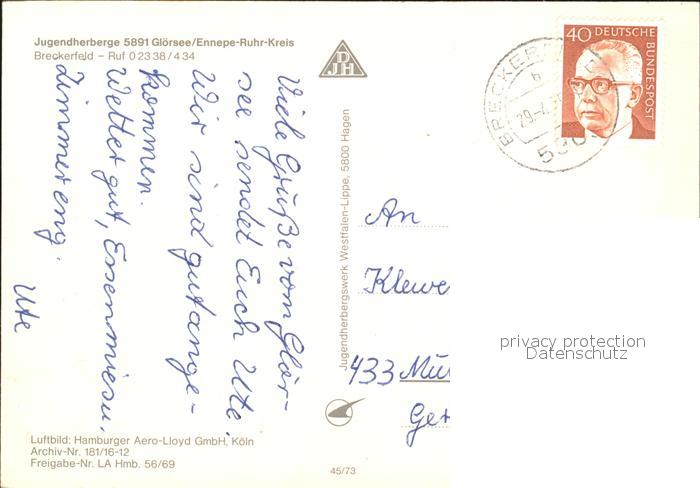 Jugendherberge 5891 Glörsee/Ennepe-Ruhr-Kreis
Breckerfeld – Ruf 0 23 38 / 4 34
Viele Grüße vom Glör-
see sendet Euch Ute.
Wir sind gut ange-
kommen.
Wetter gut, Essen mies u.
Zimmer eng.
Ute
Luftbild: Hamburger Aero-Lloyd GmbH, Köln
Archiv-Nr. 181/16-12
Freigabe-Nr. LA Hmb. 56/69
DJH
Jugendherbergswerk Westfalen-Lippe, 5800 Hagen
45/73
40 DEUTSCHE
BUNDESPOST
BRECKER
b
29.-4.
An
Klewe
433 Mü
Ger
privacy protection
Datenschutz